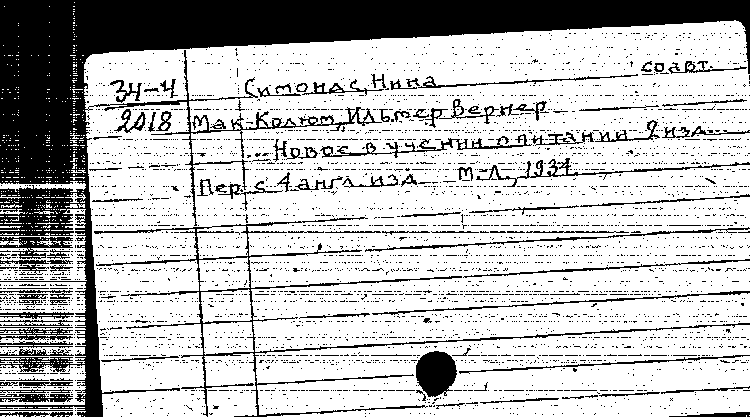 34-4 Симондс, Нина соавт.
2018 Мак-Колюм, Ильмер Вернер
...Новое в учении о питании 2 изд...
Пер. с 4 англ. изд. М.-Л., 1934.